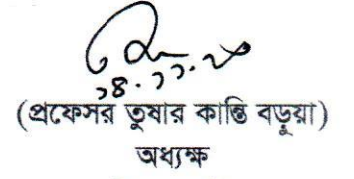 ১৪.১১.২০
(প্রফেসর তুষার কান্তি বড়ুয়া)
অধ্যক্ষ